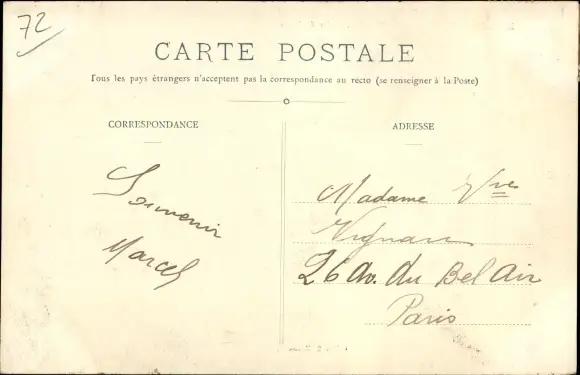 72
CARTE POSTALE
Tous les pays étrangers n'acceptent pas la correspondance au recto (se renseigner à la Poste)
CORRESPONDANCE
ADRESSE
Souvenir
Marcel
Madame Vve
26 Av. du Bel Air
Paris